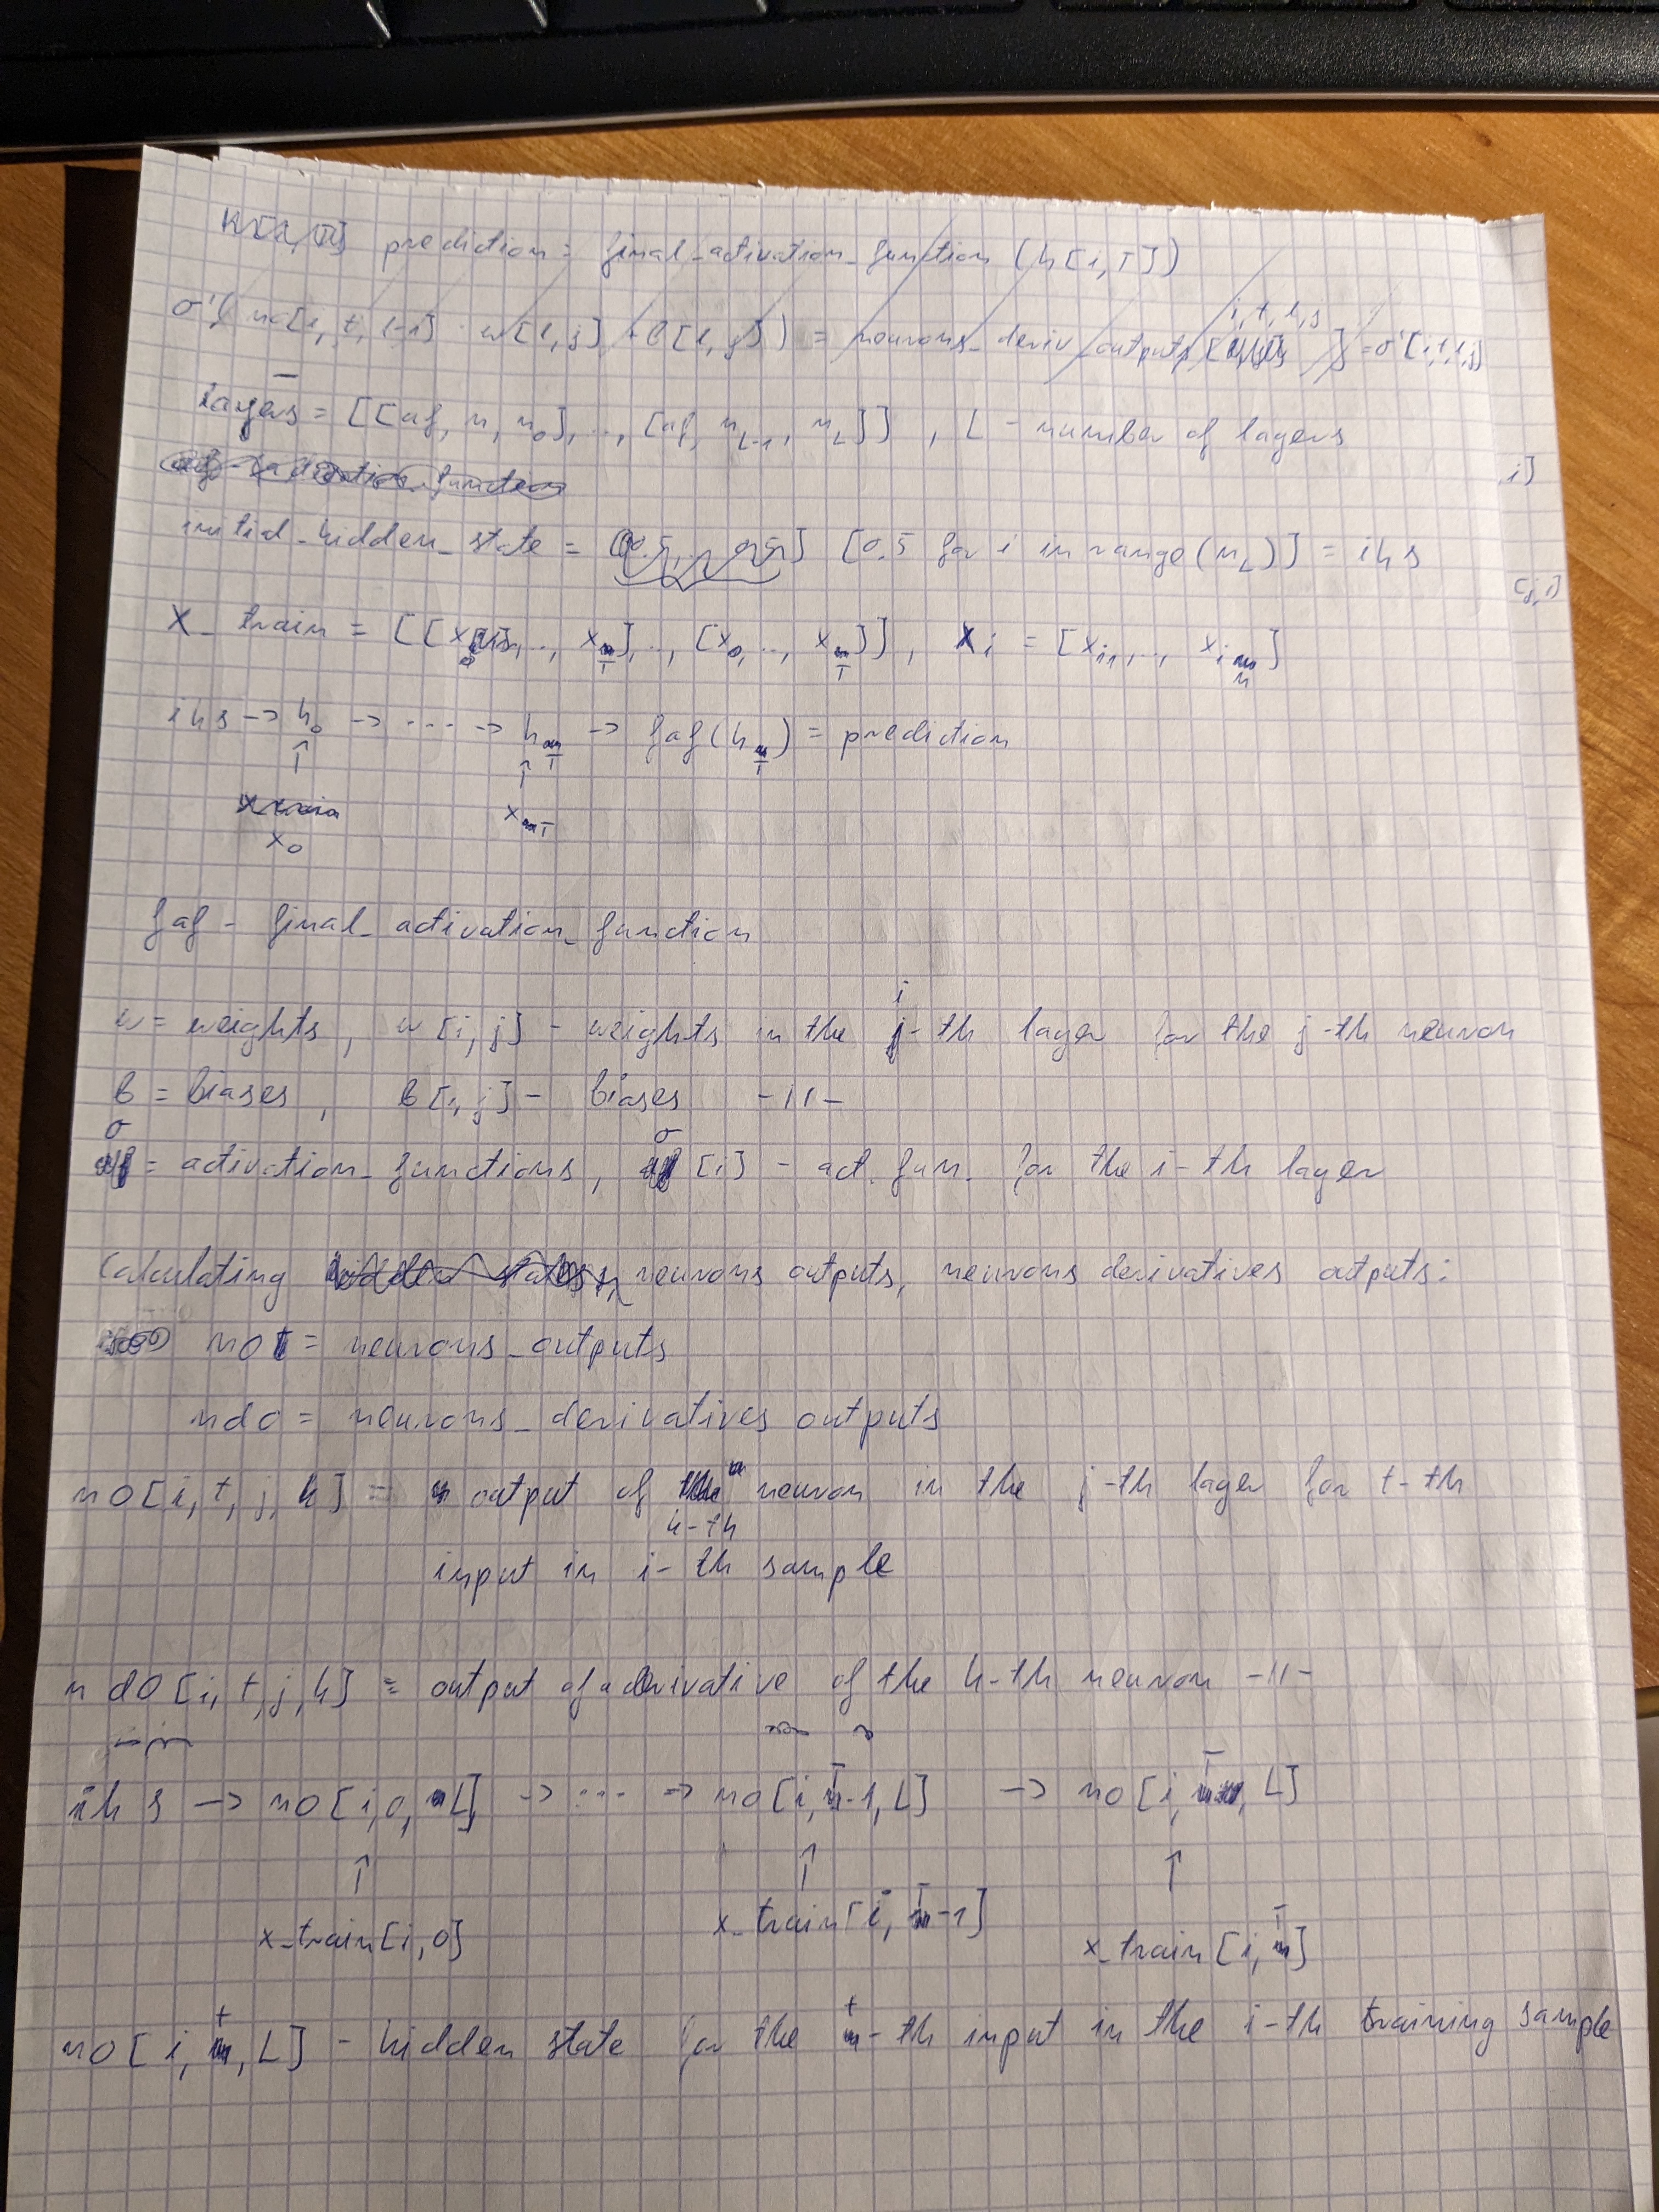 prediction = final_activation_function (h[i,T])
σ'( no[i, t, l-1] · w[l,j] + b[l,j]) = neurons_deriv_outputs [i,t,l,j] = σ'[i,t,l,j]
layers = [[af, n, n₀],.., [af, n_L-1, n_L]] , L - number of layers
i]
initial_hidden_state = [0.5 for i in range(n_L)] = ihs
[j,i]
X_train = [[x₀,.., x_T],.., [x₀,.., x_T]] , x_i = [x_i1,.., x_in]
ihs -> h₀ -> ---- -> h_T -> faf(h_T) = prediction
↑ ↑
x₀ x_T
faf - final_activation_function
w = weights , w[i,j] - weights in the i-th layer for the j-th neuron
b = biases , b[i,j] - biases -11-
σ = activation_functions, σ[i] - act. fun. for the i-th layer
Calculating neurons outputs, neurons derivatives outputs:
no = neurons_outputs
ndo = neurons_derivatives outputs
no[i, t, j, k] = output of k-th neuron in the j-th layer for t-th
input in i-th sample
ndo[i,t,j,k] = output of a derivative of the k-th neuron -11-
ihs -> no[i,0,L] -> ... -> no[i,T-1,L] -> no[i,T,L]
↑ ↑ ↑
x_train[i,0] x_train[i,T-1] x_train[i,T]
no[i,t,L] - hidden state for the t-th input in the i-th training sample